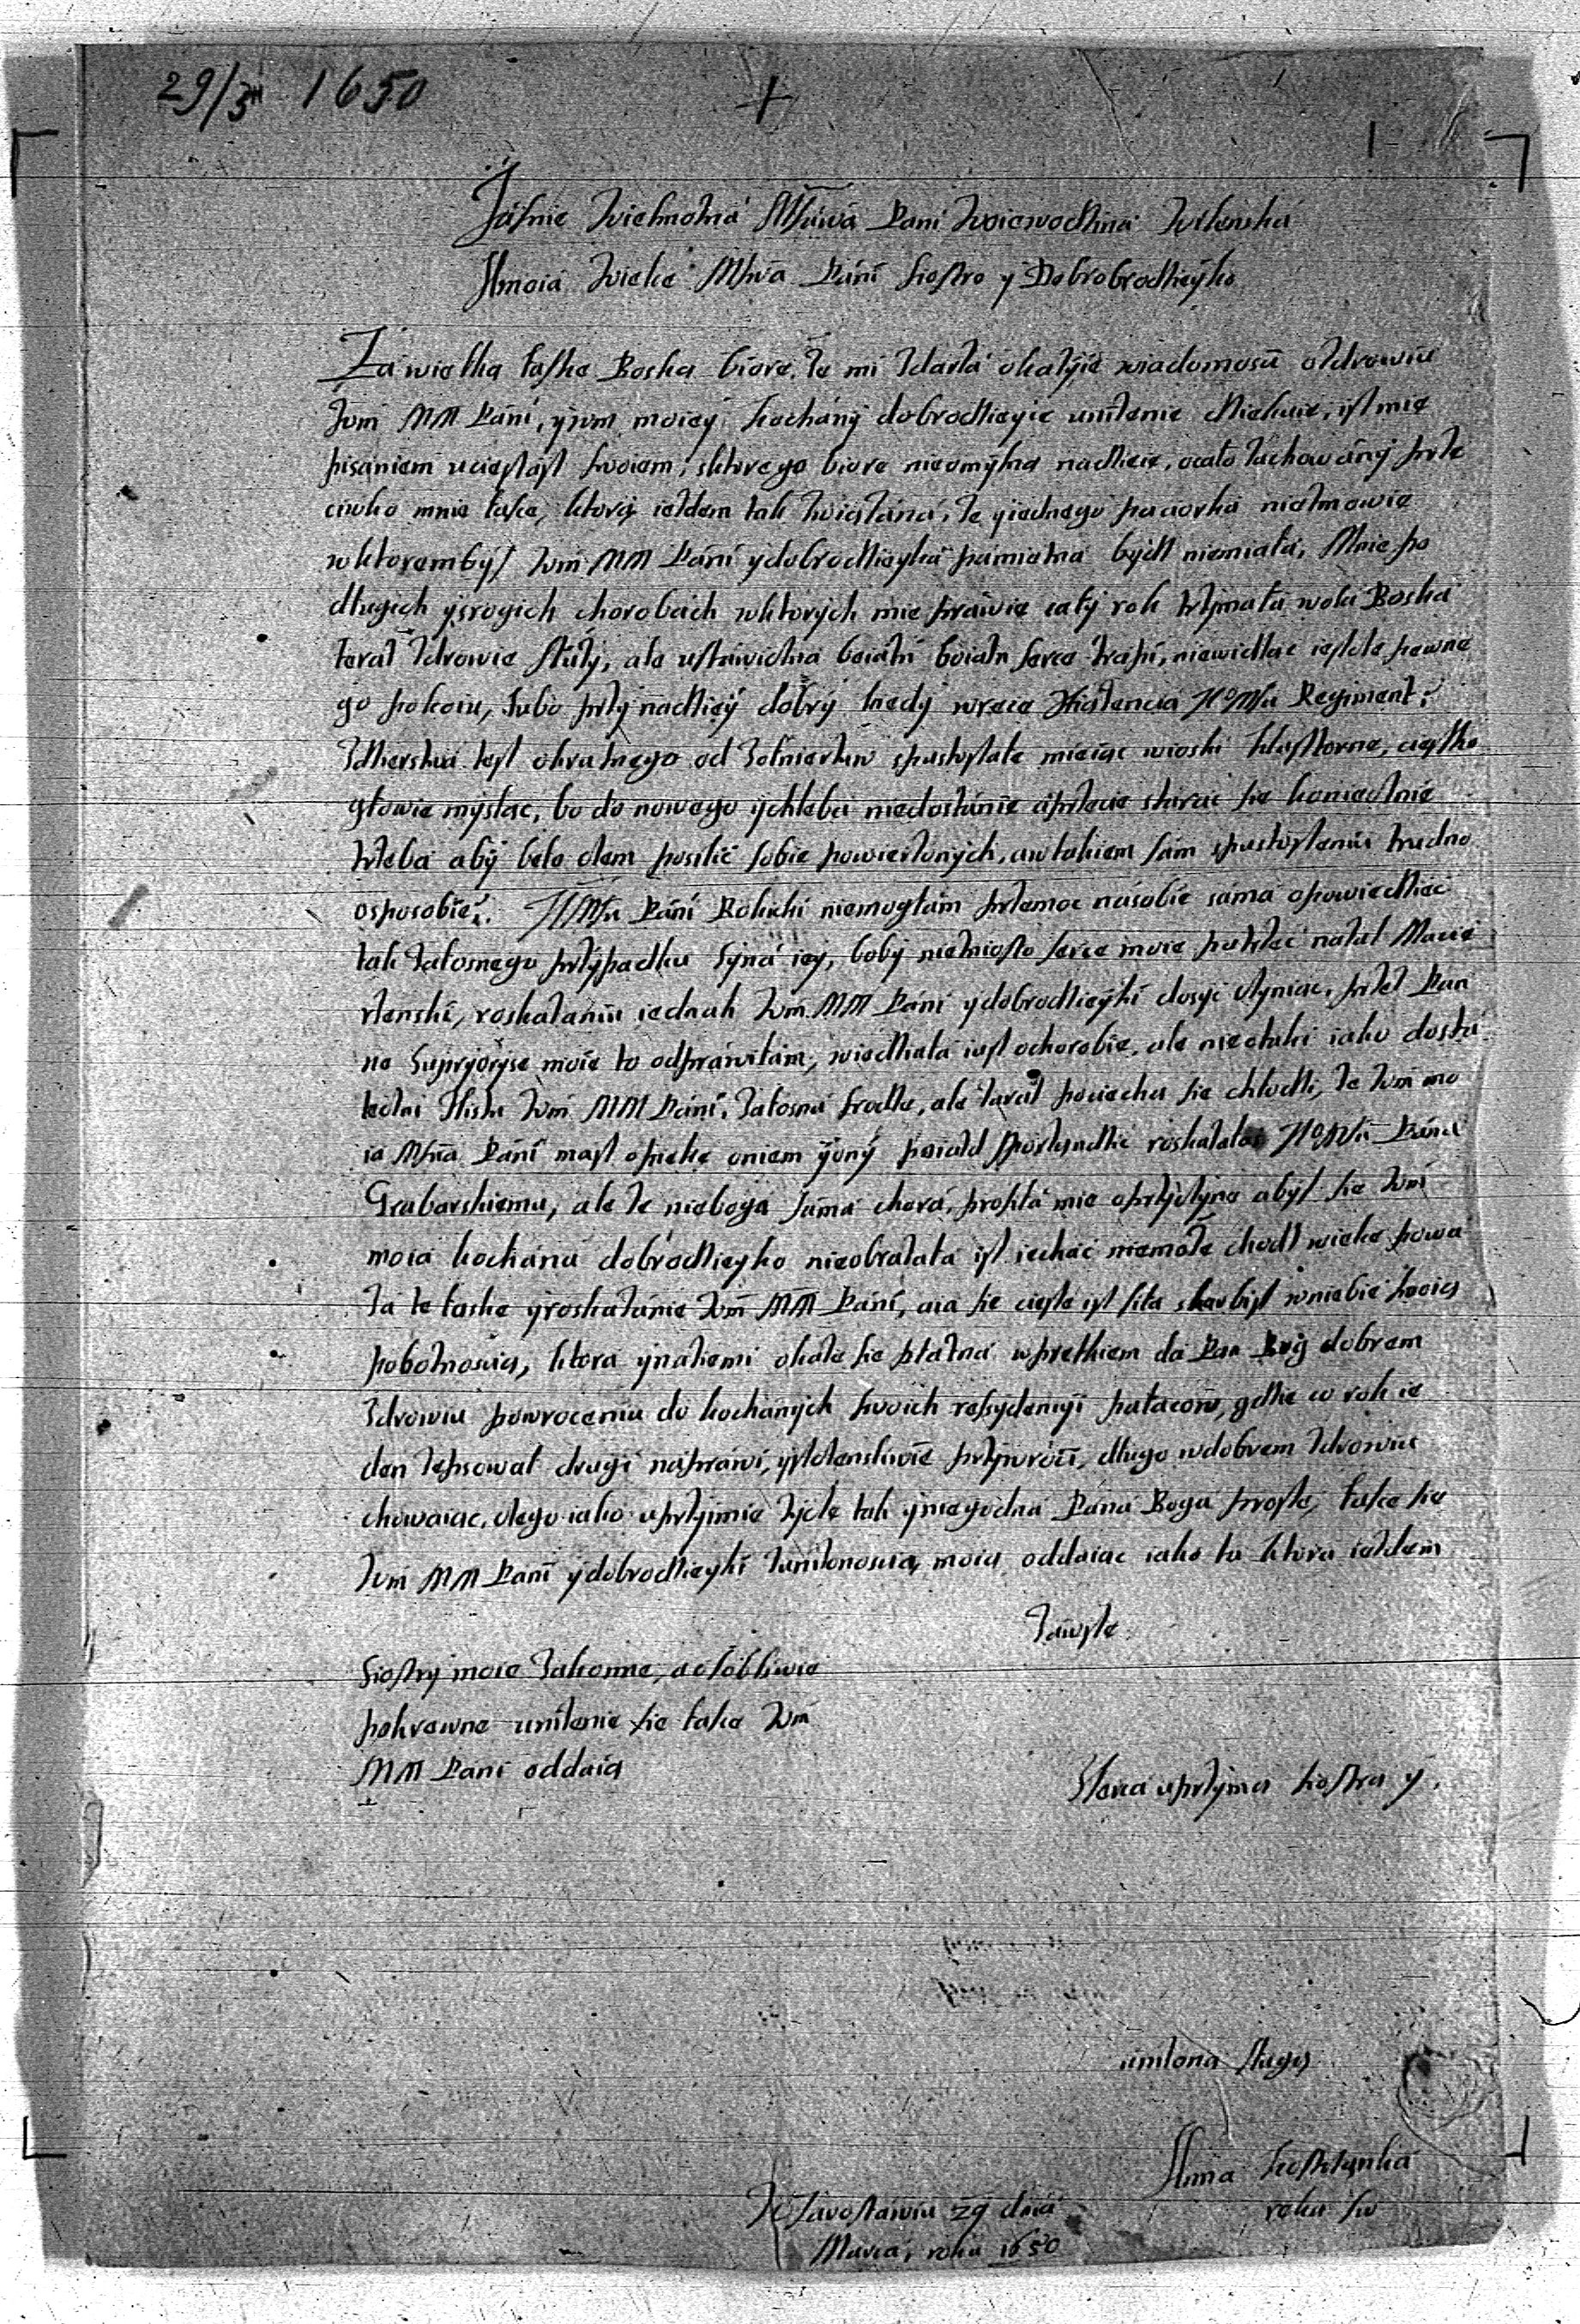 29/3 1650
+
Jásnie Wielmożna Mściwa Pani Woiewodzina Wilenska
Amoia Wielce Mściwa Páni Siostro y Dobrobrodzieyko
Za wielką łaskę Boską biorę, że mi zdarzá okazyie wiadomosci ozdrowiu
Wm MM Páni, yzwm moiey kochány dobrodzieyce uniżenie dziekuie, isz mię
pisaniem ucieszász swoiem, sktorego biorę nieomylną nadzieie, ocáło záchowány prze
ciwko mnie łasce, ktory iezdem tak związána, że yiednego paciorka niezmowię
wktorembysz Wm MM Páni ydobrodzieyka pamietna bydz niemiała, Mnie po
długich ysrogich chorobach wktorych mie práwie cały rok trzymała wola Boska
teraz zdrowie służy, ale ustáwiczna boiazn serce trapi, niewidząc ieszcze pewne
go pokoiu, lubo przy nadzieiy dobry kiedy wręce Xiążencia JeoMści Regiment.
Zdzierstwa tesz okrutnego od żołnierzów spustoszałe mieiąc wioski klasztorne, cięszko
głowie myslac, bo do nowego ychleba niedostánie áprzecie stárac sie koniecznie
trzeba aby beło czem posilić sobie powierzonych, awtakiem sam spustoszeniu trudno
osposobie. JMści Páni Rokicki niemogłám przemoc násobie sama opowiedziec
tak żałosnego przypadku syná iey, boby niezniosło serce moie patrzać nażal Macie
rzenski, roskazaniu iednak Wm MM Páni ydobrodzieyki dosyć czyniąc, przez Pan
ne Supryoryse moie to odpráwiłam, wiedziała iusz ochorobie, ale nie otaki iako dostá
teczni z listu Wm MM Páni, żałosna srodze, ale zaraz pociechą sie chłodzi, że Wm mo
ia Mścia Páni masz opiekę oniem yony poiazd sporządzic roskazała JeoMści Páná
Grabarskiemu, ale że nieboga sáma chora, prosiłá mie oprzyczynę abysz sie Wm
moia kochána dobrodzieyko nieobrażała isz iechać niemoże chodz wielce powa
ża te łaskę yroskazánie Wm MM Páni, aia sie cieszę isz siła skarbisz wniebie swoią
pobożnoscią, ktora ynaziemi okaże sie płatná wprętkiem da Pan Bog dobrem
zdrowiu powroceniu do kochánych swoich resydencyi pałacow, gdzie co rok ie
den zepsował drugi nápráwi, yszczensliwie przywroci, długo wdobrem zdrowiu
chowaiąc, czego iako uprzymie życzę tak yniegodna Páná Bogá proszę, łasce sie
Wm MM Páni ydobrodzieyki zuniżonoscią moią oddaiąc iako ta ktora iezdem
Záwsze
Siostry moie zakonne, aosobliwie
pokrewne uniżenie sie łasce Wm
MM Páni oddaią
Szczera uprzyma siostra y
uniżona sługa
Anna
ręką swą
Z Jarosławia 29 dniá
Marca, roku 1650